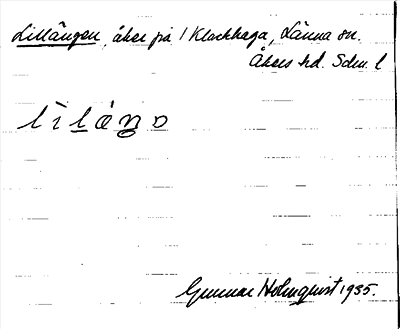 Lillängen, åker på 1 Klockhaga, Länna sn.
Åkers hd. Sdm. l
lìláŋo
Gunnar Holmquist 1935.